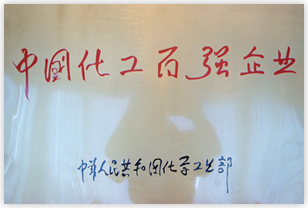 中國化工百强企业
中华人民共和国化学工业部